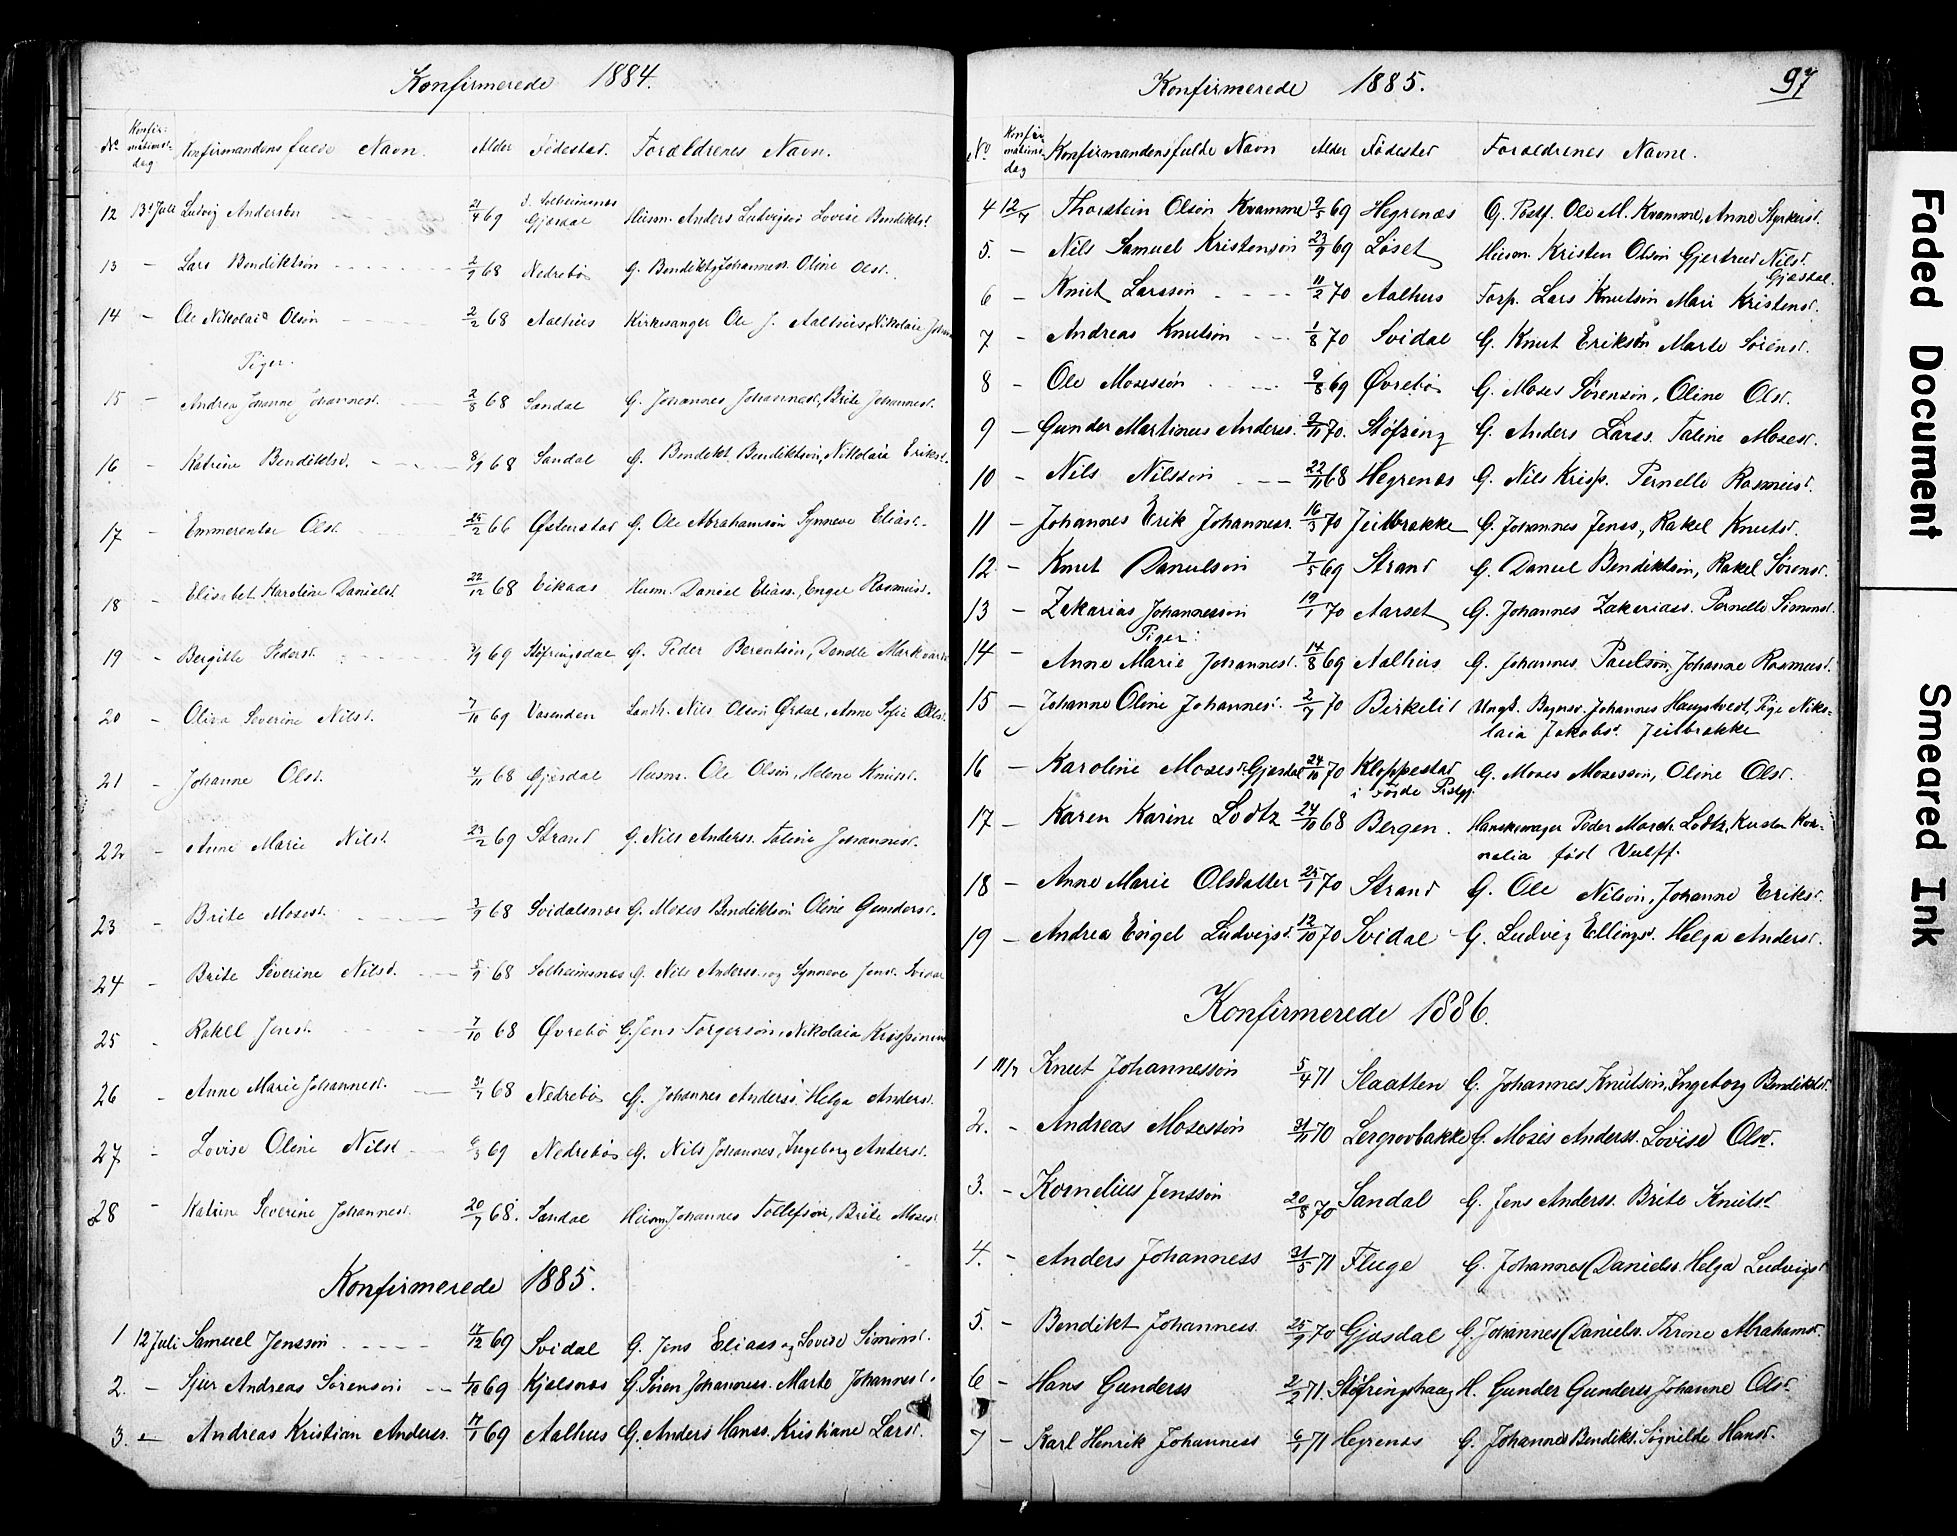 Konfirmerede 1884.
No Konfir-mations-dag Konfirmandens fulde Navn. Alder Fødested. Forældrenes Navn.
12 13de Juli Ludvig Anderssøn 21/4 69 Gjæsdal Husm. Anders Ludvigsøn Lovise Bendiktsd.
13 – Lars Bendiktsøn 68 Nedrebø G. Bendikt Johanness. Oline Olsd.
14 – Ole Nikolai Olsøn 2/2 68 Aalhus Kirkesanger Ole J. Aalhus, Nikolaie
Piger.
15 – Andrea Johanne Johannesd. 2/8 68 Sandal G. Johannes Johannes, Brite Johannesd.
16 – Katrine Bendiktsd. 8/9 68 Sandal G. Bendikt Bendiktsøn, Nikolaie Eriksd.
17 – Emmerentse Olsd. 25/2 66 Østenstad G. Ole Abrahamsøn Synneve Eliasd.
18 – Elisabet Karoline Danielsd. 22/12 68 Eikaas Husm. Daniel Eliass., Engel Rasmusd.
19 – Bergitte Pedersd. 69 Støfringsdal G. Peder Berentsøn,
20 – Oliva Severine Nilsd. 7/10 69 Vasenden Landh. Nils Olsøn Ørdal, Anne Sofie Olsd.
21 – Johanne Olsd. 68 Gjæsdal Husm. Ole Olsøn, Helene Knutsd.
22 – Anne Marie Nilsd. 23/2 69 Strand G. Nils Anderss. Taline Johannesd.
23 – Brite Mosesd. 68 Svidalsnæs G. Moses Bendiktsøn Oline Gundersd.
24 – Brite Severine Nilsd. 68 Solheimsnæs G. Nils Anderss. og Synneve Jensd. Svidal
25 – Rakel Jensd. 7/10 68 Øvrebø G. Jens Torgersøn, Nikolaia
26 – Anne Marie Johannesd. 68 Nedrebø G. Johannes Anderss. Helga Andersd.
27 – Lovise Oline Nilsd 69 Nedrebø G. Nils Johannes, Ingeborg Andersd.
28 – Katrine Severine Johannesd. 20/7 68. Sandal Husm. Johannes Tollefsøn, Brite Mosesd
Konfirmerede 1885.
1 12 Juli Samuel Jenssøn 17/12 69 Svidal G. Jens Eliass og Lovise Simonsd.
2. – Sjur Andreas Sørensøn 1/10 69 Kjelsnæs G. Søren Johanness. Marte Johannesd.
3. – Andreas Kristian Anderss. 69 Aalhus G. Anders Hanss. Kristiane Larsd.
Konfirmerede 1885.
97
No Konfir-mations-dag Konfirmandens fulde Navn Alder Fødested Forældrenes Navne.
4 12/7 Thorstein Olsøn Kvamme 9/5 69 Hegrenæs G. Postf. Ole M. Kvamme, Anne Styrkersd.
5. – Nils Samuel Kristensøn 23/9 69 Løset Husm. Kristen Olsøn Gjertrud Nilsd.
Gjæsdal.
6 – Knut Larssøn 11/2 70 Aalhus Forp. Lars Knutsøn Mari Kristensd.
7 – Andreas Knutsøn 1/8 70 Svidal G. Knut Eriksøn Marte Sørensd.
8 – Ole Mosessøn 9/8 69 Øvrebø G. Moses Sørensøn, Oline Olsd.
9 – Gunder Martinus Anderss. 2/11 70. Støfring G. Anders Larss. Taline Mosesd.
10 – Nils Nilssøn 22/11 68 Hegrenæs G. Nils Krisp. Pernelle Rasmusd.
11 – Johannes Erik Johanness. 16/3 70 Jeitbrække G. Johannes Jenss, Rakel Knutsd.
12 – Knut Danielsøn 7/5 69 Strand G. Daniel Bendiktsøn, Rakel Sørensd.
13 – Zekarias Johannessøn 19/1 70 Aarset G. Johannes Zakeriass. Pernelle Simonsd.
Piger:
14 – Anne Marie Johannesd. 14/8 69 Aalhus G. Johannes Paulsøn, Johanne Rasmusd.
15 – Johanne Oline Johannesd. 2/7 70 Birkelid Ungk. Johannes Haugstvedt, Pige Niko-
laia Jakobsd. Jeitbrække
16 – Karoline Mosesd. Gjæsdal 24/10 70 Kloppestad G. Moses Mosessøn, Oline Olsd.
i Førde Præstgj.
17 – Karen Karine Lodtz 24/10 68 Bergen. Hanskemager Peder Morch Lodtz, Kor-
nelia født Vulff.
18 – Anne Marie Olsdatter 25/1 70 Strand G. Ole Nilsøn, Johanne Eriksd.
19 – Andrea Engel Ludvigsd. 12/10 70 Svidal G. Ludvig Ellings. Helga Andersd.
Konfirmerede 1886.
1 11/7 Knut Johannessøn 5/4 71 Slaatten G. Johannes Knutsøn, Ingeborg Bendiktsd.
2. – Andreas Mosessøn 70 Lergrovbakke G. Moses Anderss. Lovise Olsd.
3. – Kornelius Jenssøn 20/8 70 Sandal G. Jens Anderss. Brite Knutsd
4. – Anders Johanness 31/5 71 Fluge G. Johannes Daniels. Helga Ludvigsd
5. – Bendikt Johanness. 25/9 70 Gjæsdal G. Johannes Daniels. Thrine Abrahamsd.
6 – Hans Gunderss 2/2 71. Støfringshaug H. Gunder Gunderss Johanne Olsd.
7 – Karl Henrik Johanness 6/1 71 Hegrenæs G. Johannes Bendikt. Søgnilde Hansd.
Faded Document
Smeared Ink